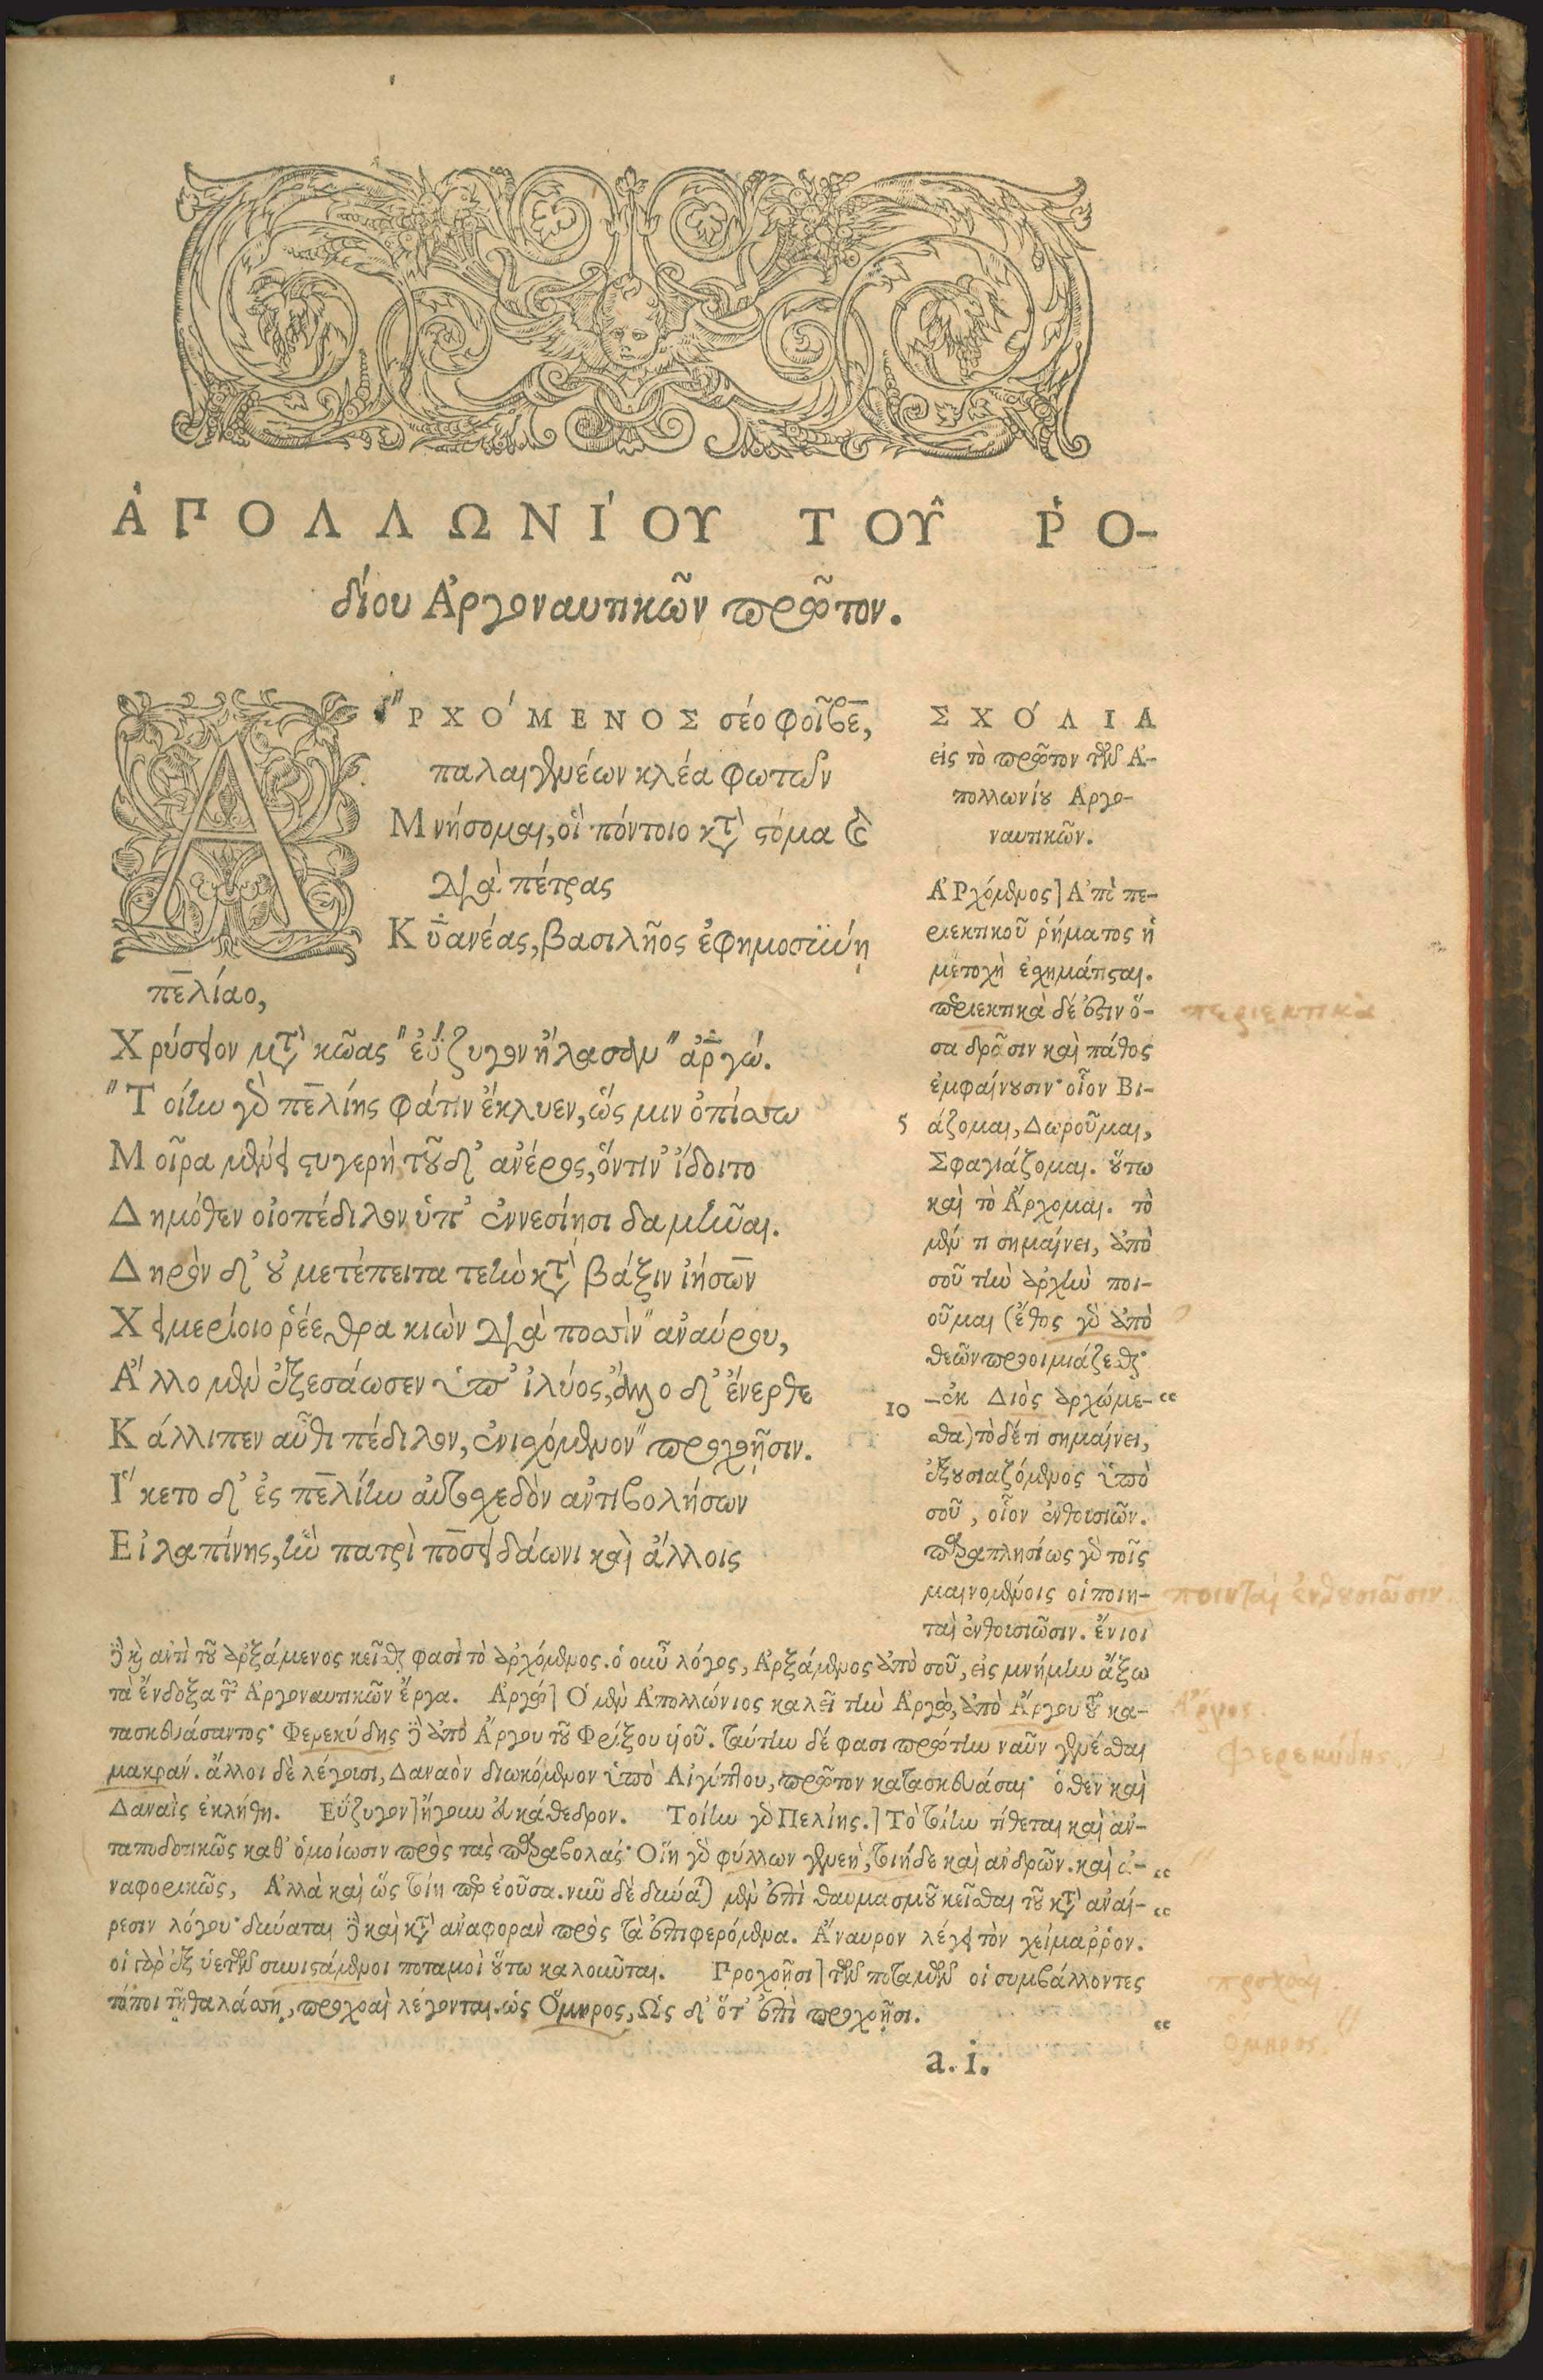 ἈΠΟΛΛΩΝΙ´ΟΥ ΤΟΥ͂ ῬΟ-
δίου Ἀργοναυτικῶν πρῶτον.
ἌΡΧΟ´ΜΕΝΟΣ σέο φοῖβε,
παλαιγενέων κλέα φωτῶν
Μνήσομαι, οἳ πόντοιο κατὰ στόμα καὶ
διὰ πέτρας
Κυανέας, βασιλῆος ἐφημοσύνῃ
πελίαο,
Χρύσειον μετὰ κῶας "ἐΰζυγον ἤλασαν "ἀργώ.
"Τοίην γὰρ πελίης φάτιν ἔκλυεν, ὥς μιν ὀπίσσω
Μοῖρα μένει στυγερὴ, τοῦδ' ἀνέρος, ὅντιν' ἴδοιτο
Δημόθεν οἰοπέδιλον, ὑπ' ἐννεσίῃσι δαμῆναι.
Δηρὸν δ' οὐ μετέπειτα τεὴν κατὰ βάξιν ἰήσων
Χειμερίοιο ῥέεθρα κιὼν διὰ ποσσὶν "ἀναύρου,
Ἄλλο μὲν ἐξεσάωσεν ὑπ' ἰλύος, ἄλλο δ' ἔνερθε
Κάλλιπεν αὖθι πέδιλον, ἐνισχόμενον "προχοῇσιν.
Ἵκετο δ' ἐς πελίην αὐτοσχεδὸν ἀντιβολήσων
Εἰλαπίνης, ἣν πατρὶ ποσειδάωνι καὶ ἄλλοις
5
10
ΣΧΟ´ΛΙΑ
εἰς τὸ πρῶτον τῶν Ἀ-
πολλωνίου Ἀργο-
ναυτικῶν.
ἈΡχόμενος] Ἀπὸ πε-
ριεκτικοῦ ῥήματος ἡ
μετοχὴ ἐσχημάτισται.
περιεκτικὰ δέ ἐστιν ὅ-
σα δρᾶσιν καὶ πάθος
ἐμφαίνουσιν· οἷον Βι-
άζομαι, Δωροῦμαι,
Σφαγιάζομαι. οὕτω
καὶ τὸ Ἄρχομαι. τὸ
μέν τι σημαίνει, ἀπὸ
σοῦ τὴν ἀρχὴν ποι-
οῦμαι (ἔθος γὰρ ἀπὸ
θεῶν προοιμιάζεσθαι·
-ἐκ Διὸς ἀρχώμε- “
θα) τὸ δέ τι σημαίνει,
ἐξουσιαζόμενος ὑπὸ
σοῦ, οἷον ἐνθουσιῶν.
παραπλησίως γὰρ τοῖς
μαινομένοις οἱ ποιη-
ταὶ ἐνθουσιῶσιν. ἔνιοι
δὲ καὶ ἀντὶ τοῦ ἀρξάμενος κεῖσθαι φασὶ τὸ ἀρχόμενος. ὁ οὖν λόγος, Ἀρξάμενος ἀπὸ σοῦ, εἰς μνήμην ἄξω
τὰ ἔνδοξα τῶν Ἀργοναυτικῶν ἔργα. Ἀργώ] Ὁ μὲν Ἀπολλώνιος καλεῖ τὴν Ἀργὼ, ἀπὸ Ἄργου τοῦ κα-
τασκευάσαντος· Φερεκύδης δὲ ἀπὸ Ἄργου τοῦ Φρίξου υἱοῦ. ταύτην δέ φασι πρώτην ναῦν γενέσθαι
μακράν. ἄλλοι δὲ λέγουσι, Δαναὸν διωκόμενον ὑπὸ Αἰγύπτου, πρῶτον κατασκευάσαι· ὅθεν καὶ
Δαναῒς ἐκλήθη. Εὔζυγον] ἤγουν εὐκάθεδρον. Τοίην γὰρ Πελίης.] Τὸ τοίην τίθεται καὶ ἀν-
ταποδοτικῶς καθ' ὁμοίωσιν πρὸς τὰς παραβολάς· Οἵη γὰρ φύλλων γενεὴ, τοιήδε καὶ ἀνδρῶν. καὶ ἀ- “
ναφορικῶς, Ἀλλὰ καὶ ὣς τοίη περ ἐοῦσα. νῦν δὲ δύναται μὲν ἐπὶ θαυμασμοῦ κεῖσθαι τοῦ κατὰ ἀναί- “
ρεσιν λόγου· δύναται δὲ καὶ κατὰ ἀναφορὰν πρὸς τὰ ἐπιφερόμενα. Ἄναυρον λέγει τὸν χείμαρρον.
οἱ γὰρ ἐξ ὑετῶν συνιστάμενοι ποταμοὶ οὕτω καλοῦνται. Προχοῇσι] τῶν ποταμῶν οἱ συμβάλλοντες
τόποι τῇ θαλάσσῃ, προχοαὶ λέγονται. ὡς Ὅμηρος, Ὡς δ' ὅτ' ἐπὶ προχοῇσι. “
a.i.
περιεκτικὰ
ποιηταὶ ἐνθουσιῶσιν
Ἄργος.
Φερεκύδης.
προχοαι.
Ὅμηρος.